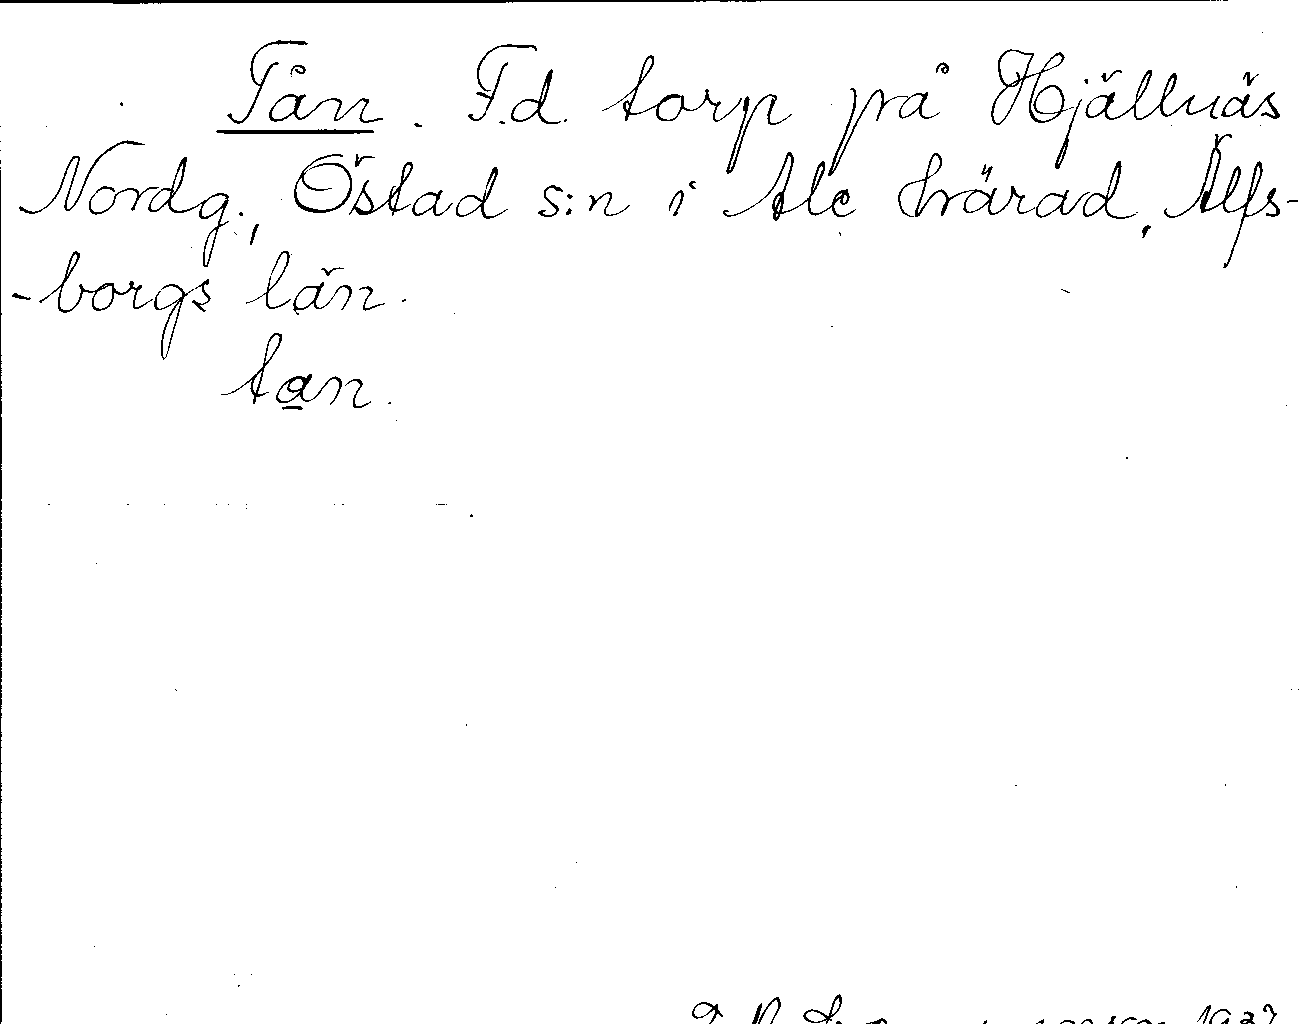 Tån. F.d. torp på Hjällnäs
Nordg., Östad s:n i Ale härad, Älfs-
-borgs län.
tan.